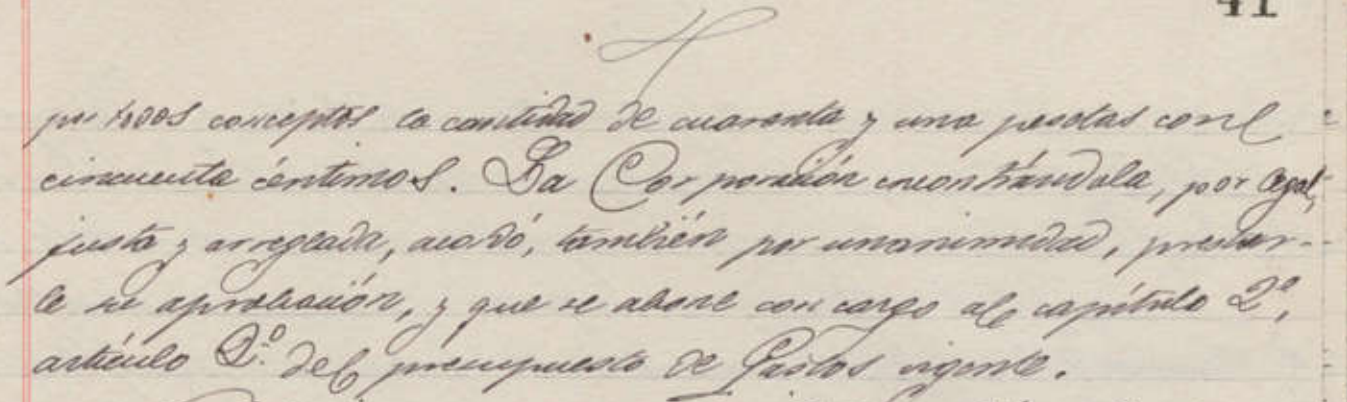 41
por todos conceptos la cantidad de cuarenta y una pesetas con
cincuenta céntimos. La Corporación encontrándola, por legal,
justa y arreglada, acordó, también por unanimidad, prestar-
le su aprobación, y que se abone con cargo al capítulo 2º,
artículo 2.º del presupuesto de Gastos vigente.